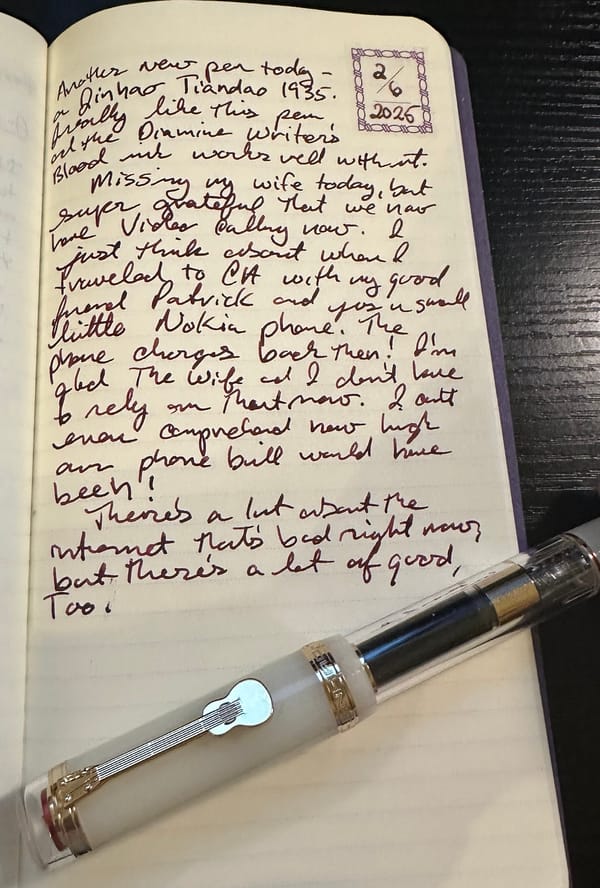 2/6
2025
Another new pen today -
a Jinhao Tiandao 1935.
Really like this pen
and the Diamine Writer's
Blood ink works well with it.
Missing my wife today, but
super grateful that we now
have Video calling now. I
just think about when I
traveled to CA with my good
friend Patrick and was using a small
little Nokia phone. The
phone charges back then! I'm
glad the wife and I don't have
to rely on that now. I can't
even comprehend how high
our phone bill would have
been!
There's a lot about the
internet that's bad right now,
but there's a lot of good,
Too.